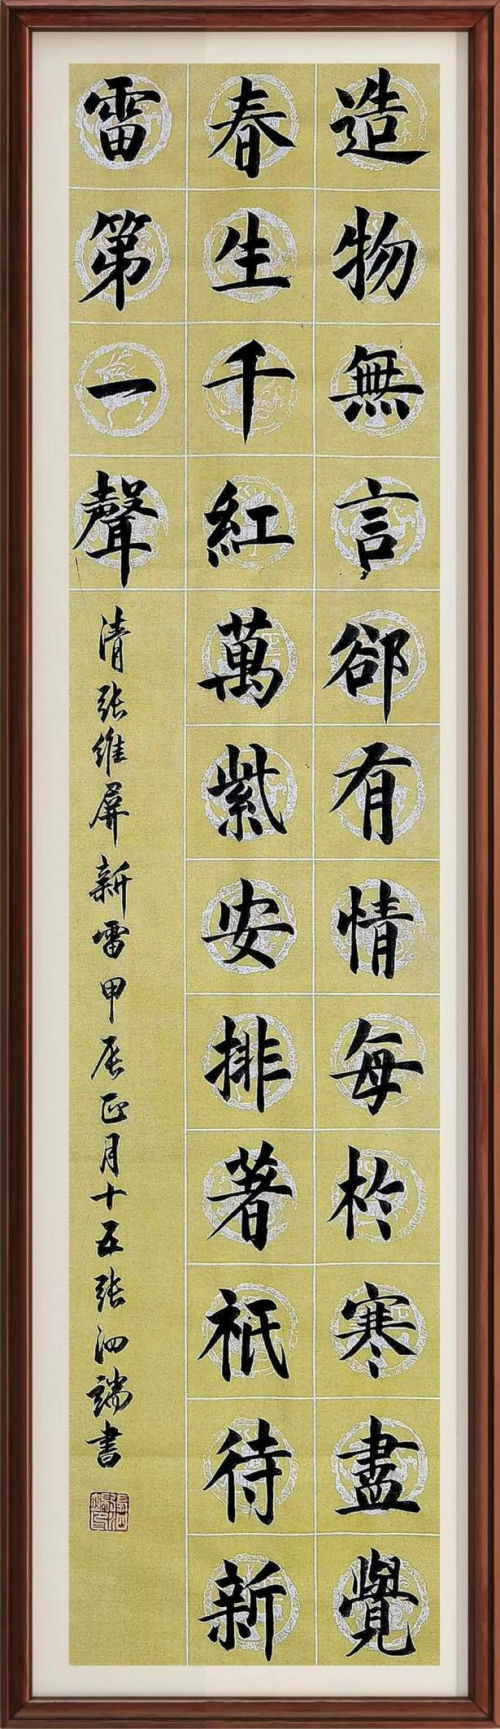 造物無言郤有情每於寒盡覺
春生千紅萬紫安排著祗待新
雷第一聲
清张維屏新雷甲辰正月十五张泗端書